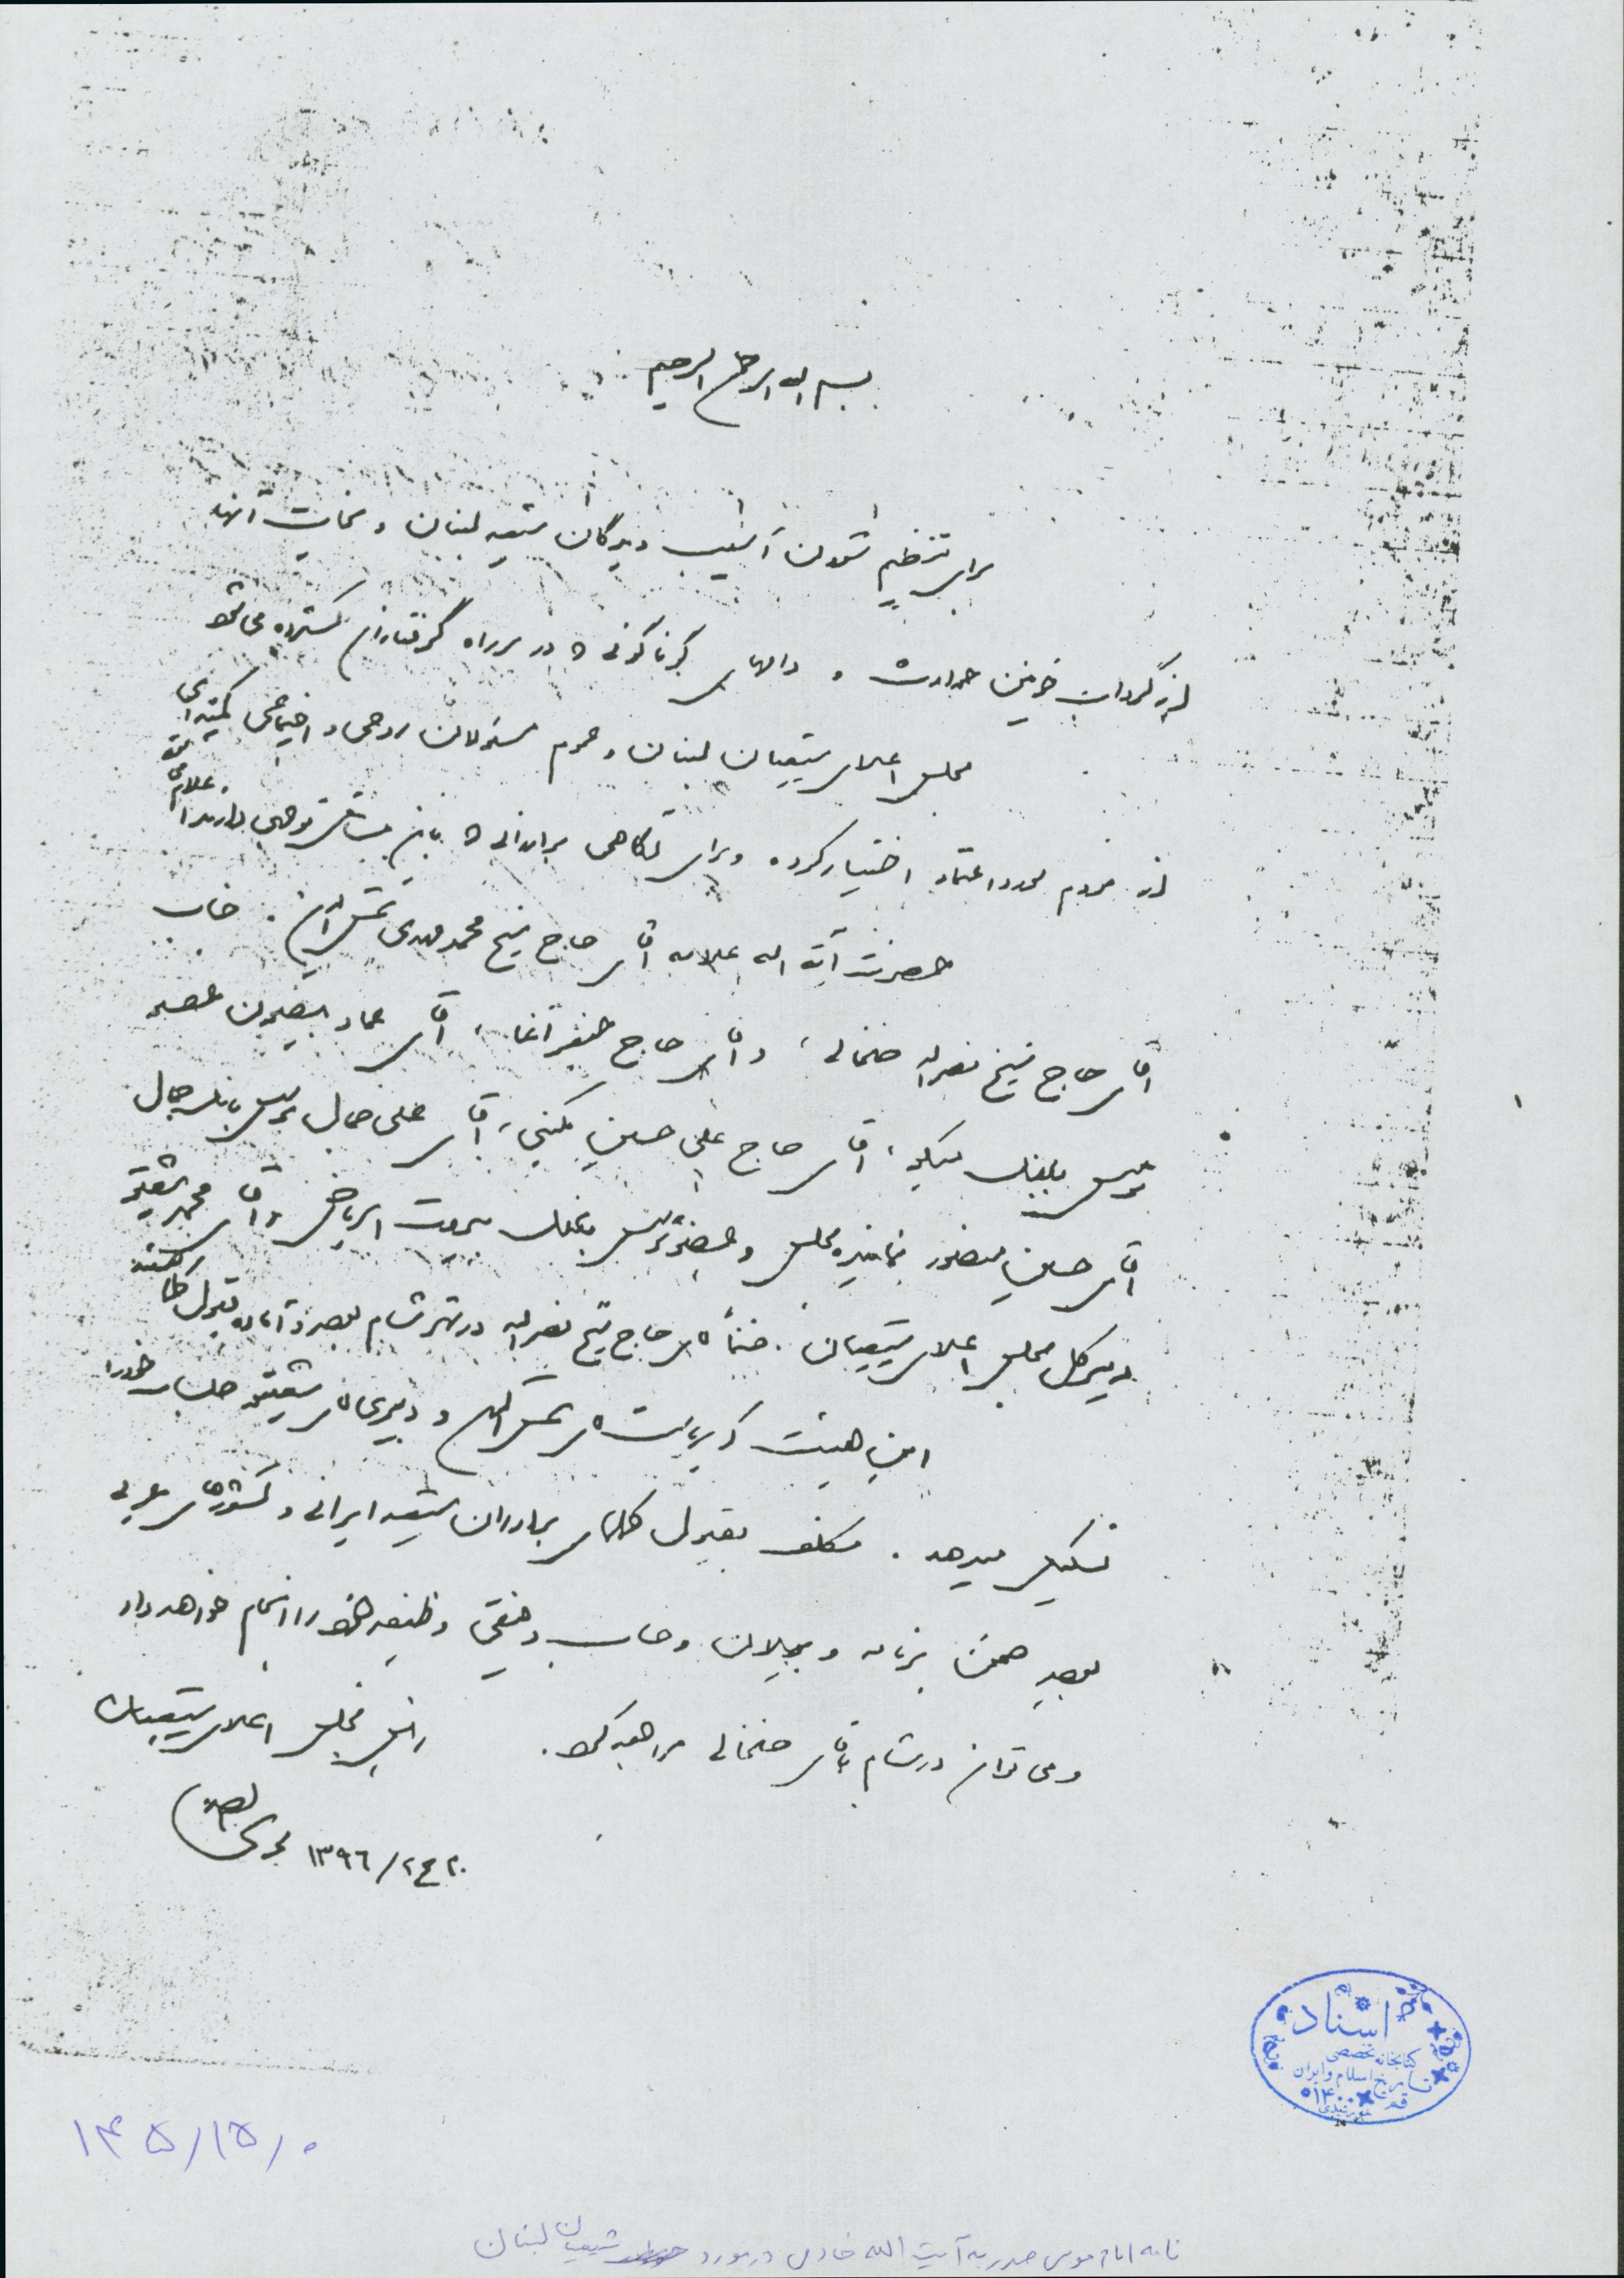 بسم الله الرحمن الرحیم
برای تنظیم شئون آسیب دیدگان شیعه لبنان و نجات آنها
از گرداب خونین حوادث و دامهای گوناگونی که در سر راه گرفتاران گسترده می شود
مجلس اعلای شیعیان لبنان و عموم مسئولان روحی و اجتماعی کمیته ای
از مردم مورد اعتماد اختیار کرده و برای آگاهی برادرانی که باین مسائل توجهی دارند اعلام می
حضرت آیة الله علامه آقای حاج شیخ محمد مهدی شمس الدین. جناب
آقای حاج شیخ نصرالله خلخالی، و آقای حاج جعفر آغا، آقای عماد بیضون عضو
آقای حاج علی حسین مکنی، آقای علی جمال رئیس بانک جمال
آقای حسین منصور نماینده مجلس و عضو رئیس بانک بیروت الریاض و آقای محمد شعیتو
دبیر کل مجلس اعلای شیعیان. ضمناً آقای حاج شیخ نصرالله در شهر شام بصورت آماده قبول کمک
این هیئت که بریاست آقای شمس الدین و دبیری آقای شعیتو جلسات خود را
تشکیل میدهد. مکلف بقبول کمکهای برادران شیعه ایرانی و کشورهای عربی
بوده ضمن برنامه و بیلان و حساب دقیقی وظیفه خود را انجام خواهد داد
و می توان در شام بآقای خلخالی مراجعه کرد. رئیس مجلس اعلای شیعیان
۲۰ ع ۲/ ۱۳۹٦ موسی الصدر
اسناد
کتابخانه تخصصی
تاریخ اسلام و ایران
قم ۱۴۰۰
۱۴۵/۱۵/۰
نامه امام موسی صدر به آیت الله خادمی در مورد شیعیان لبنان